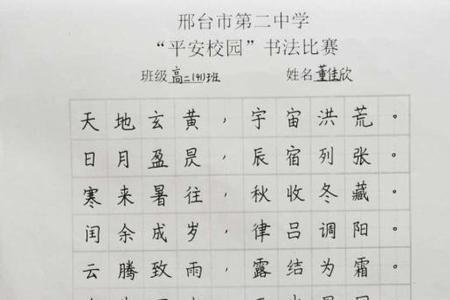 邢台市第二中学
“平安校园”书法比赛
班级高二(41)班 姓名董佳欣
天地玄黄，宇宙洪荒。
日月盈昃，辰宿列张。
寒来暑往，秋收冬藏。
闰余成岁，律吕调阳。
云腾致雨，露结为霜。